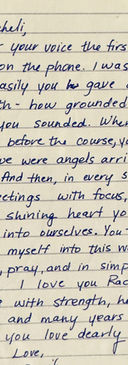 heli,
your voice the firs
on the phone. I was
asily you gave
th - how grounded
you sounded. Whe
before the course, yo
ve were angels arri
And then, in every s
eetings with focus,
shining heart yo
into ourselves. You
myself into this w
pray, and in simp
I love you Rac
with strength, he
and many years
you love dearly
Love,